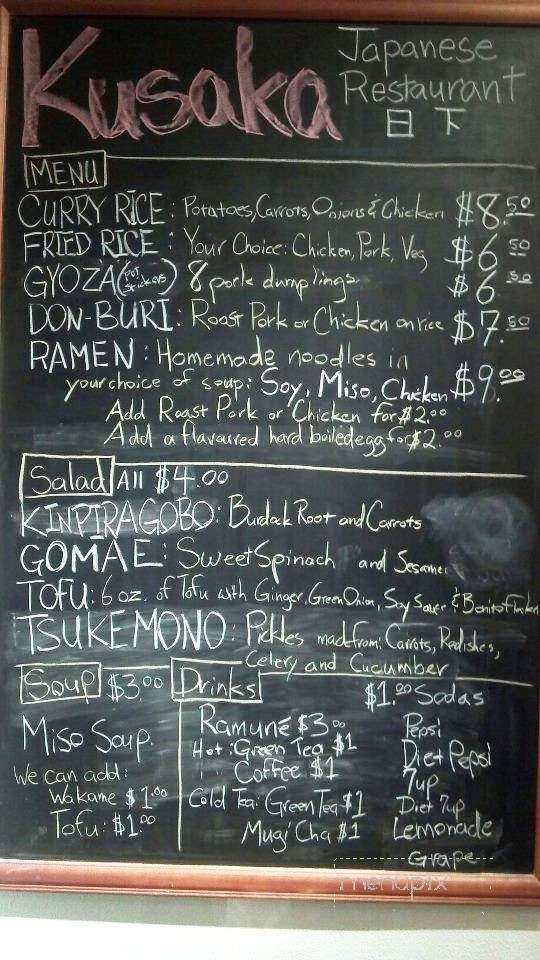 Kusaka
Japanese
Restaurant
日下
MENU
CURRY RICE: Potatoes, Carrots, Onions & Chicken $8.50
FRIED RICE: Your Choice: Chicken, Pork, Veg $6.50
GYOZA (Pot Stickers) 8 pork dumplings $6.50
DON-BURI: Roast Pork or Chicken on rice $7.50
RAMEN: Homemade noodles in
your choice of soup: Soy, Miso, Chicken $9.00
Add Roast Pork or Chicken for $2.00
Add a flavoured hard boiled egg for $2.00
Salad All $4.00
KINPIRAGOBO: Burdock Root and Carrots
GOMAE: Sweet Spinach and Sesame
TOFU: 6 oz. of Tofu with Ginger, Green Onion, Soy Sauce & Bonito
TSUKEMONO: Pickles made from: Carrots, Redishes,
Celery and Cucumber
Soup $3.00
Miso Soup.
We can add:
Wakame $1.00
Tofu: $1.00
Drinks
Ramuné $3.00
Hot: Green Tea $1
Coffee $1
Cold Tea: Green Tea $1
Mugi Cha $1
$1.00 Sodas
Pepsi
Diet Pepsi
7up
Diet 7up
Lemonade
Grape
menupix